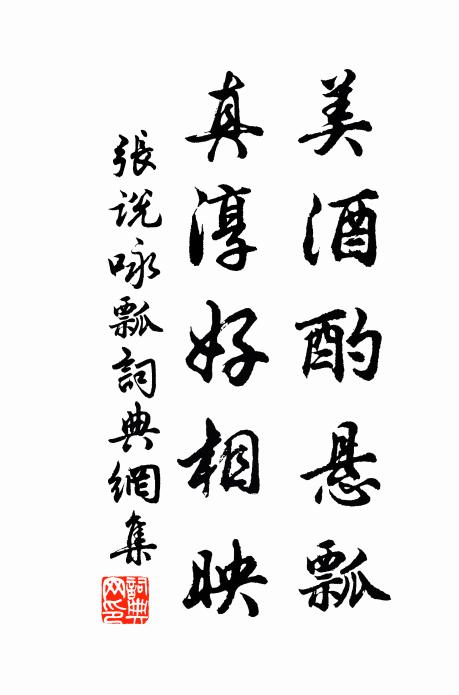 美酒酌悬瓢
真淳好相映
張説咏瓢詞典網集
詞典网印